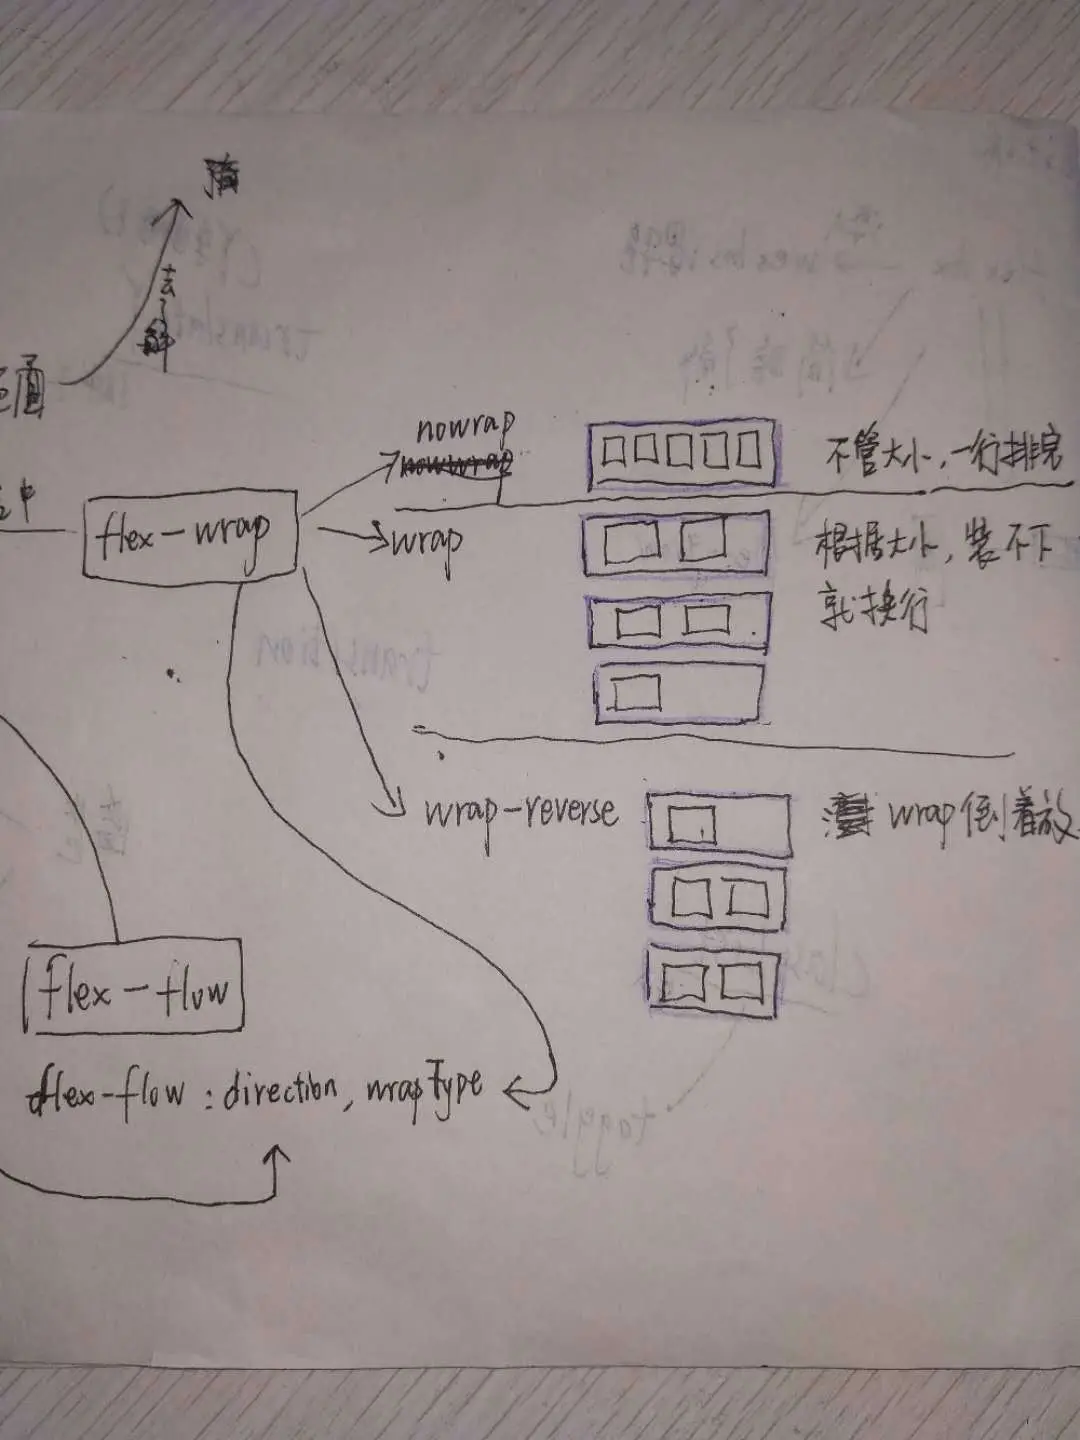 去了解
nowrap
不管大小，一行排完
flex-wrap
wrap
根据大小，装不下
就换行
wrap-reverse
wrap倒着放
flex-flow
flex-flow : direction, wrapType